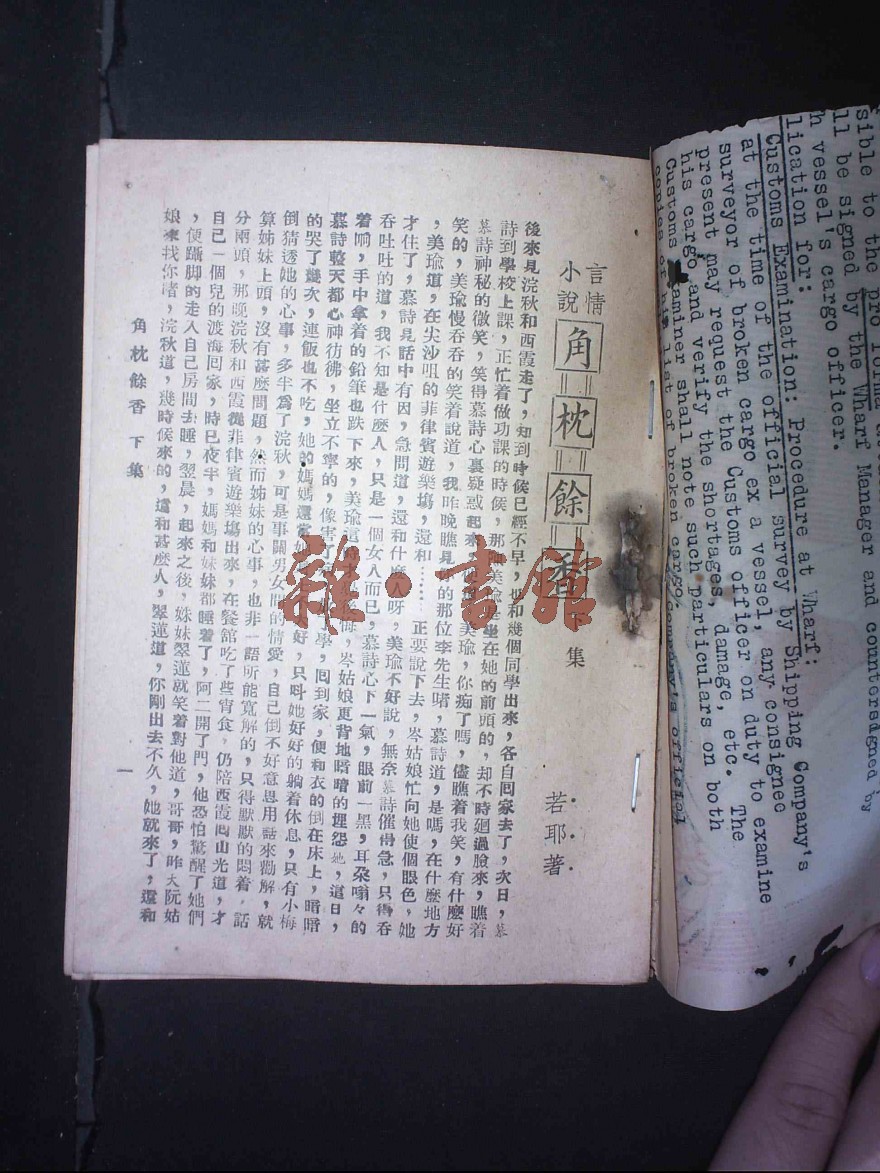 言情
小說
角枕餘香 下集
若耶著
後來見浣秋和西霞走了，知到時候已經不早，也和幾個同學出來，各自回家去了，次日，慕
詩到學校上課，正忙着做功課的時候，那美瑜是坐在她的前頭的，却不時廻過臉來，瞧着
慕詩神秘的微笑，笑得慕詩心裏疑惑起來，美瑜，你痴了嗎，儘瞧着我笑，有什麼好
笑的，美瑜慢吞吞的笑着說道，我昨晚瞧見的那位李先生唶，慕詩道，是嗎，在什麼地方
，美瑜道，在尖沙咀的菲律賓遊樂塲，還和……正要說下去，岑姑娘忙向她使個眼色，她
才住了，慕詩見話中有因，急問道，還和什麼人呀，美瑜不好說，無奈慕詩催得急，只得吞
吞吐吐的道，我不知是什麼人，只是一個女人而已，慕詩心下一氣，眼前一黑，耳朶嗡々的
着响，手中拿着的鉛筆也跌下來，美瑜這，岑姑娘更背地暗暗的埋怨她，這日，
慕詩整天都心神彷彿，坐立不寧的，像害了學，回到家，便和衣的倒在床上，暗暗
的哭了幾次，連飯也不吃，她的媽媽還當她好，只呌她好好的躺着休息，只有小梅
倒猜透她的心事，多半爲了浣秋，可是事關男女間的情愛，自己倒不好意思用話來勸解，就
算姊妹上頭，沒有甚麼問題，然而姊妹的心事，也非一語所能寬解的，只得默默的悶着，話
分兩頭，那晚浣秋和西霞從菲律賓遊樂塲出來，在餐館吃了些宵食，仍陪西霞回山光道，才
自己一個兒的渡海回家，時已夜半，媽媽和妹妹都睡着了，阿二開了門，他恐怕驚醒了她們
，便躡脚的走入自己房間去睡，翌晨，起來之後，姊妹翠蓮就笑着對他道，哥哥，昨天阮姑
娘來找你唶，浣秋道，幾時候來的，還和甚麼人，翠蓮道，你剛出去不久，她就來了，還和
角枕餘香 下集
一
雜·書館
sible to the pro forma
ll be signed by the Wharf Manager and countersigned by
h vessel's cargo officer.
lication for:
Customs Examination: Procedure at Wharf:
at the time of the official survey by Shipping Company's
surveyor of broken cargo ex a vessel, any consigned
present may request the Customs officer on duty to examine
his cargo and verify the shortages, damage, etc. The
Customs Examiner shall note such particulars on both
copies of his list of broken cargo. Company's official